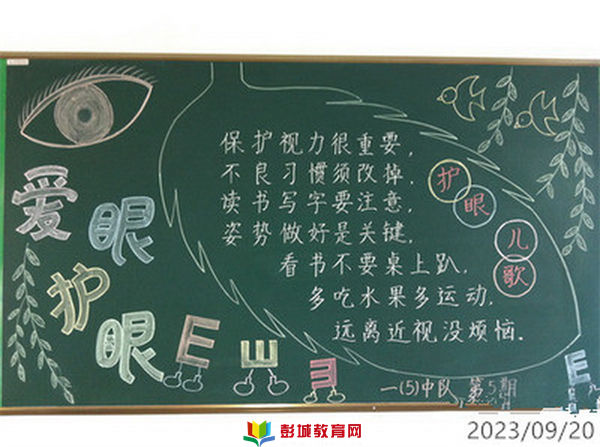 爱眼
护眼
E E E
保护视力很重要，
不良习惯须改掉．
读书写字要注意，
姿势做好是关键，
看书不要桌上趴，
多吃水果多运动，
远离近视没烦恼．
护眼
儿歌
一(5)中队 第5期
E
彭城教育网
2023/09/20